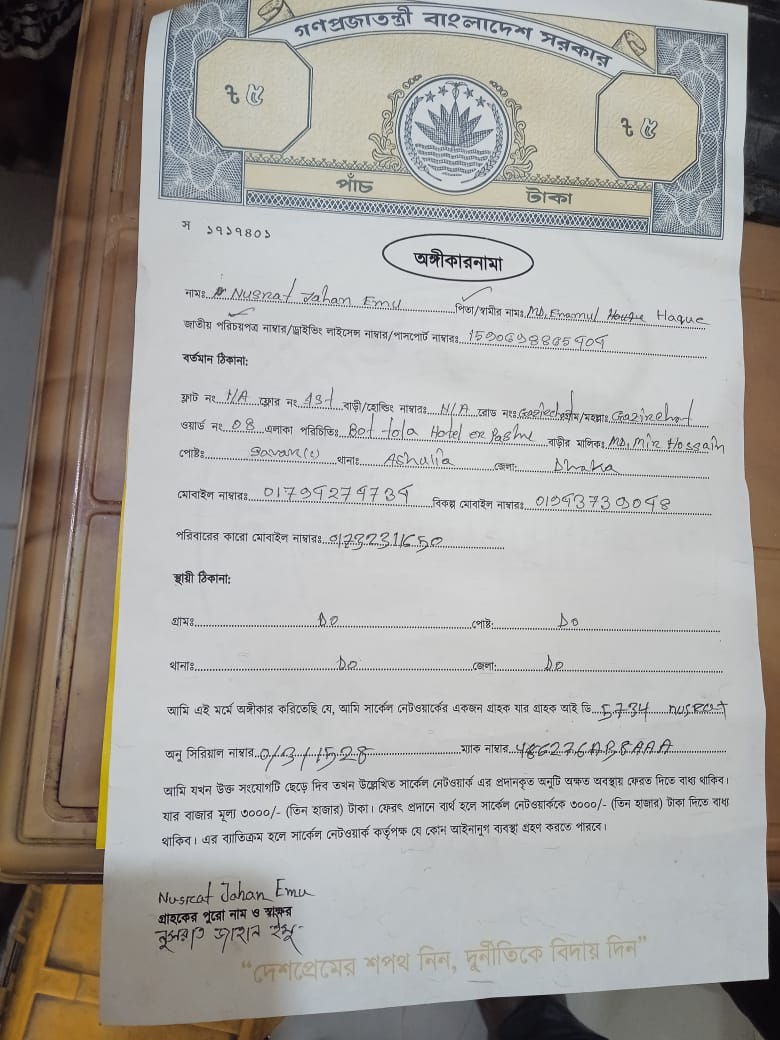 গণপ্রজাতন্ত্রী বাংলাদেশ সরকার
৳ ৫ ৳ ৫
পাঁচ টাকা
স ১৭১৭৪০১
অঙ্গীকারনামা
নামঃ Nusrat Jahan Emu পিতা/স্বামীর নামঃ MD. Enamul Haque
জাতীয় পরিচয়পত্র নাম্বার/ড্রাইভিং লাইসেন্স নাম্বার/পাসপোর্ট নাম্বারঃ
বর্তমান ঠিকানা:
ফ্লাট নং N/A ফ্লোর নং 1st বাড়ী/হোল্ডিং নাম্বারঃ N/A রোড নংঃ গ্রাম/মহল্লাঃ Gazirchat
ওয়ার্ড নং 08 এলাকা পরিচিতিঃ Bot tola Hotel er Pashe বাড়ীর মালিকঃ MD. Mir Hossain
পোষ্টঃ Savar(c) থানাঃ Ashulia জেলা: Dhaka
মোবাইল নাম্বারঃ 01794274734 বিকল্প মোবাইল নাম্বারঃ 01943739048
পরিবারের কারো মোবাইল নাম্বারঃ 01723231650
স্থায়ী ঠিকানা:
গ্রামঃ Do পোষ্ট: Do
থানাঃ Do জেলা: Do
আমি এই মর্মে অঙ্গীকার করিতেছি যে, আমি সার্কেল নেটওয়ার্কের একজন গ্রাহক যার গ্রাহক আই ডি 5734 nusrat
অনু সিরিয়াল নাম্বার 0/3/1528 ম্যাক নাম্বার 486276AB8AAA
আমি যখন উক্ত সংযোগটি ছেড়ে দিব তখন উল্লেখিত সার্কেল নেটওয়ার্ক এর প্রদানকৃত অনুটি অক্ষত অবস্থায় ফেরত দিতে বাধ্য থাকিব।
যার বাজার মূল্য ৩০০০/- (তিন হাজার) টাকা। ফেরৎ প্রদানে ব্যর্থ হলে সার্কেল নেটওয়ার্ককে ৩০০০/- (তিন হাজার) টাকা দিতে বাধ্য
থাকিব। এর ব্যতিক্রম হলে সার্কেল নেটওয়ার্ক কর্তৃপক্ষ যে কোন আইনানুগ ব্যবস্থা গ্রহণ করতে পারবে।
Nusrat Jahan Emu
গ্রাহকের পুরো নাম ও স্বাক্ষর
নুসরাত জাহান ইমু
“দেশপ্রেমের শপথ নিন, দুর্নীতিকে বিদায় দিন”